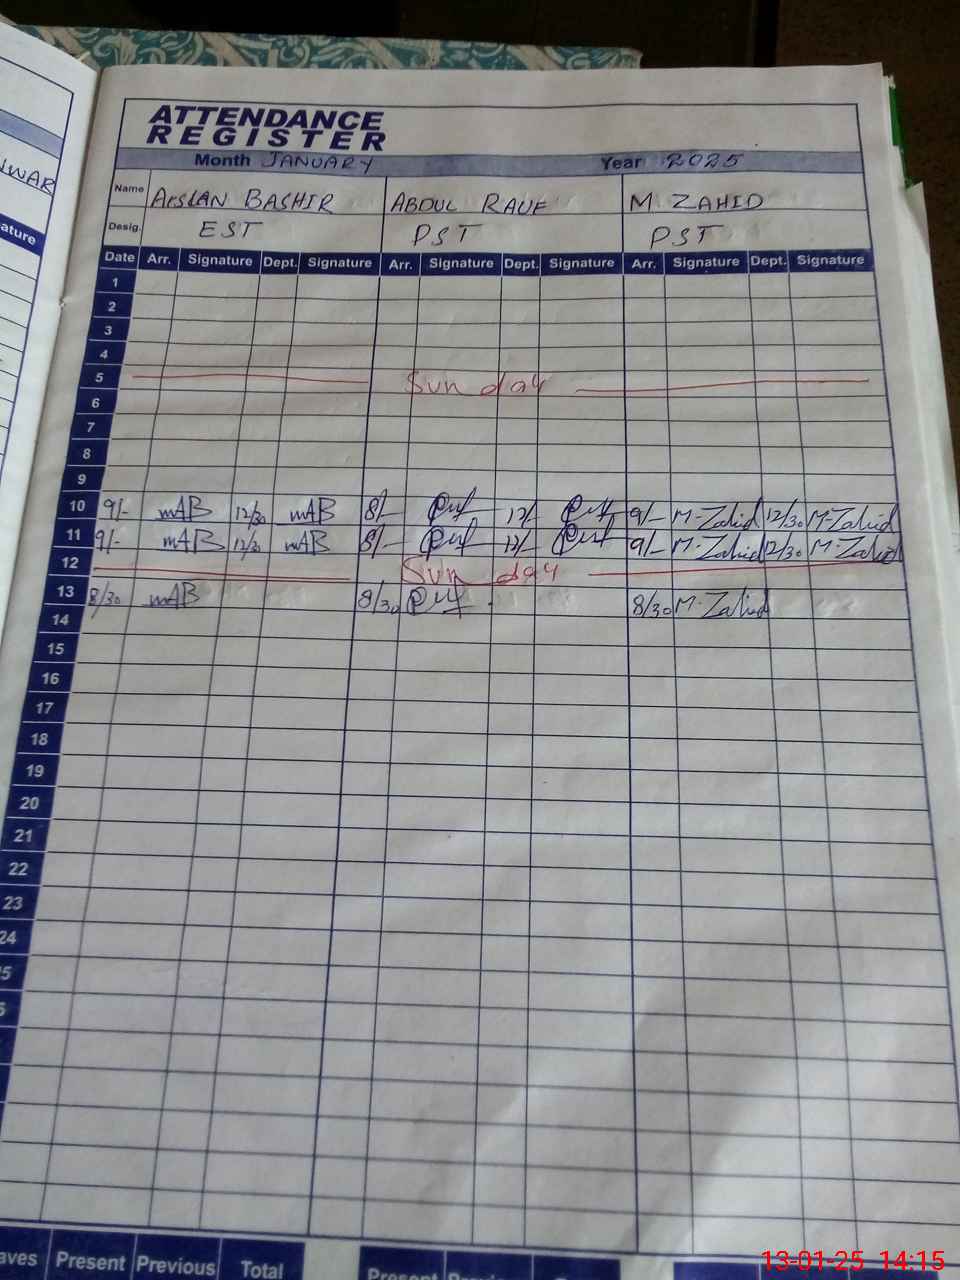 NWAR
ature
ATTENDANCE
REGISTER
Month JANUARY Year 2025
Name ArsLAN BASHIR ABDUL RAUF M ZAHID
Desig. EST PST PST
Date Arr. Signature Dept. Signature Arr. Signature Dept. Signature Arr. Signature Dept. Signature
1
2
3
4
5 Sunday
6
7
8
9
10 9/- mAB 12/30 mAB 8/- 12/- 9/- M-Zahid 12/30 M-Zahid
11 9/- mAB 12/30 mAB 8/- 12/- 9/- M-Zahid 12/30 M-Zahid
12 Sunday
13 8/30 mAB 8/30 8/30 M-Zahid
14
15
16
17
18
19
20
21
22
23
24
5
aves Present Previous Total Present
13-01-25 14:15